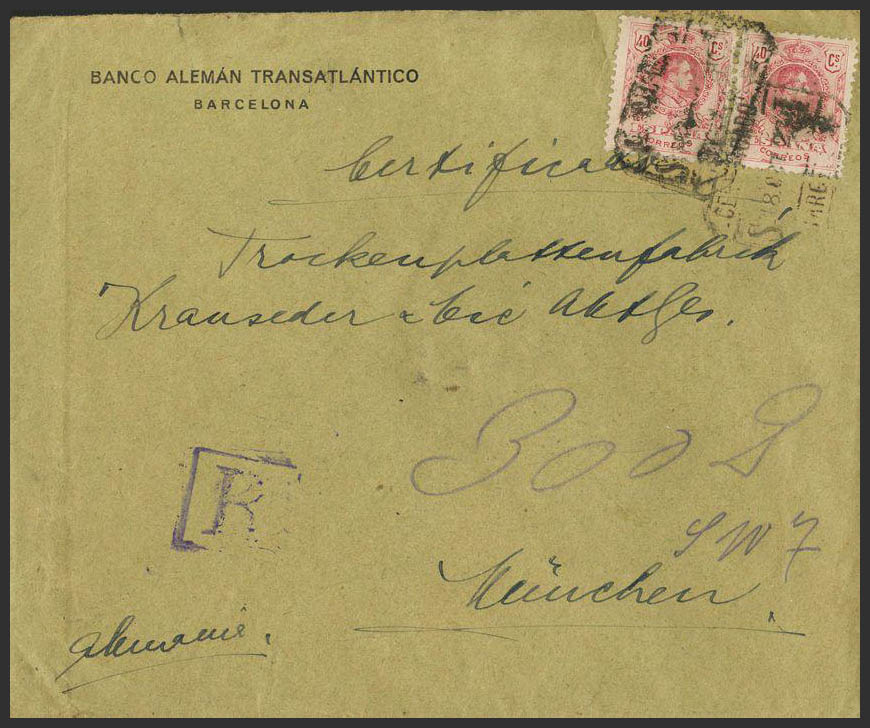 BANCO ALEMÁN TRANSATLÁNTICO
BARCELONA
40 Cs
40 Cs
CORREOS
CORREOS
Certificado
Trockenplattenfabrik
Kranseder & Cie AktGes.
R
S W 7
München.
Alemania.